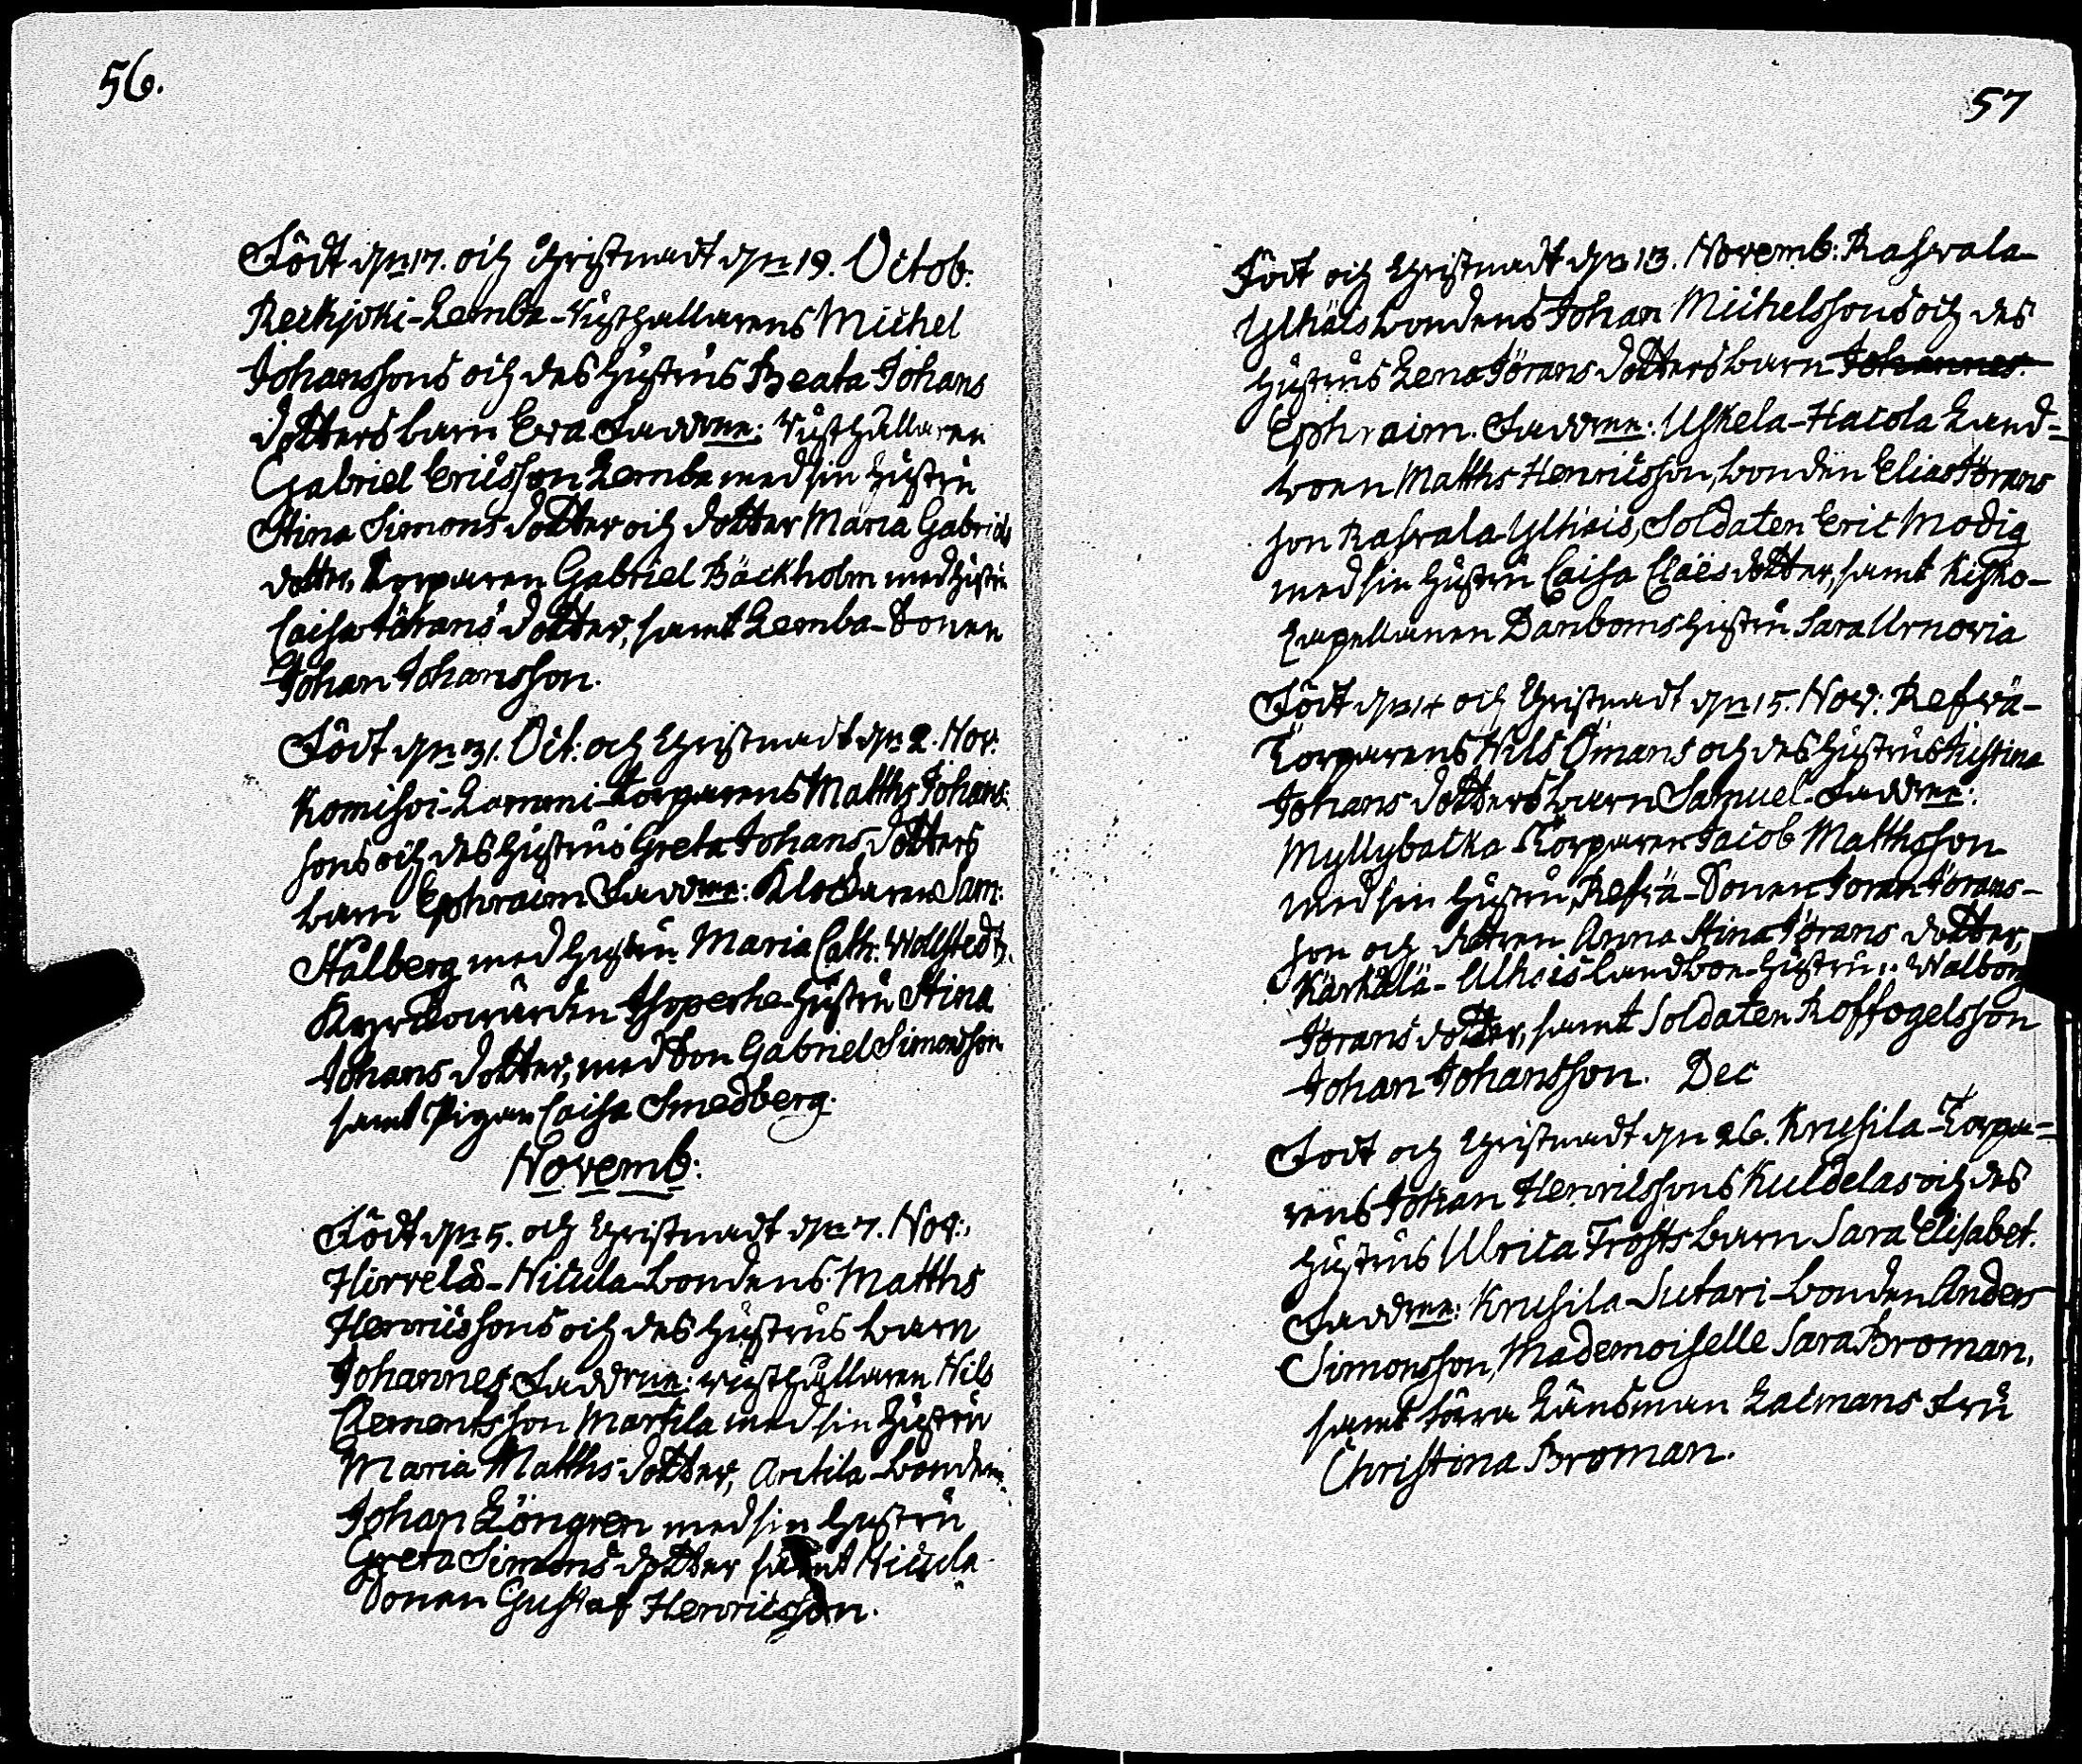 56.
Född d̄n 17. och Christnadt d̄n 19. Octob:
Reckijoki-Lemba-Rusthållarens Michel
Johanssons och des hustrus Beata Johans
dotters barn Eva Faddrar: Rusthållaren
Gabriel Ericsson Lemba med sin hustru
Stina Simons dotter och dotter Maria Gabriels
dotter, Torparen Gabriel Bäckholm med hustru
Caisa Jörans dotter, samt Lemba-Sonen
Johan Johansson.
Född d̄n 31. Oct: och Christnadt d̄n 2. Nov:
Komisoi-Lammi-Torparens Matths Johans:
sons och des hustrus Greta Johans dotters
barn Ephraim Faddrar: Klockaren Sam:
Stålberg med hustru Maria Cath: Wollstedt,
Kyrckowärden hustru Stina
Johans dotter, med Son Gabriel Simonsson
samt Pigan Caisa Smedberg.
Novemb:
Född d̄n 5. och Christnadt d̄n 7. Nov:
Hirvelä-Nicula-bondens Matths
Henricssons och des hustrus barn
Johannes Faddrar: rusthållaren Nils
Clementsson Martila med sin hustru
Maria Matths dotter, Antila-bonden
Johan Löngren med sin hustru
Greta Simons dotter samt Nicula
Sonen Gustaf Henricsson.
57
Född och Christnadt d̄n 13. Novemb: Rasvala-
Ylhäis bondens Johan Michelssons och des
hustrus Lena Jörans dotters barn Johannes
Ephraim. Faddrar: Uskela-Hacola Land=
boen Matths Henricsson, bonden Elias Jörans
son Rasvala-Ylhäis, Soldaten Eric Modig
med sin hustru Caisa Claës dotter, samt Kisko-
Capellanen Danboms hustru Sara Urnovia
Född d̄n 14 och Christnadt d̄n 15. Nov: Refvä-
Torparens Nils Ömans och des hustrus Justina
Johans dotters barn Samuel Faddrar:
Myllybacka Torparen Jacob Matthsson
med sin hustru, Refvä-Sonen Joran Jörans-
son och dottren Anna Stina Jörans dotter,
Kärkälä-Ulhäis landboe-hustru: Walborg
Jörans dotter, samt Soldaten Koffogelsson
Johan Johansson. Dec
Född och Christnadt d̄n 26. Krusila-Torpa=
rens Johan Henricssons Kuldelas och des
hustrus Ulrica Frosts barn Sara Elisabet.
Faddrar: Krusila-Sutari-bonden Anders
Simonsson, Mademoiselle Sara Broman,
samt Länsman Lacmans Fru
Christina Broman.